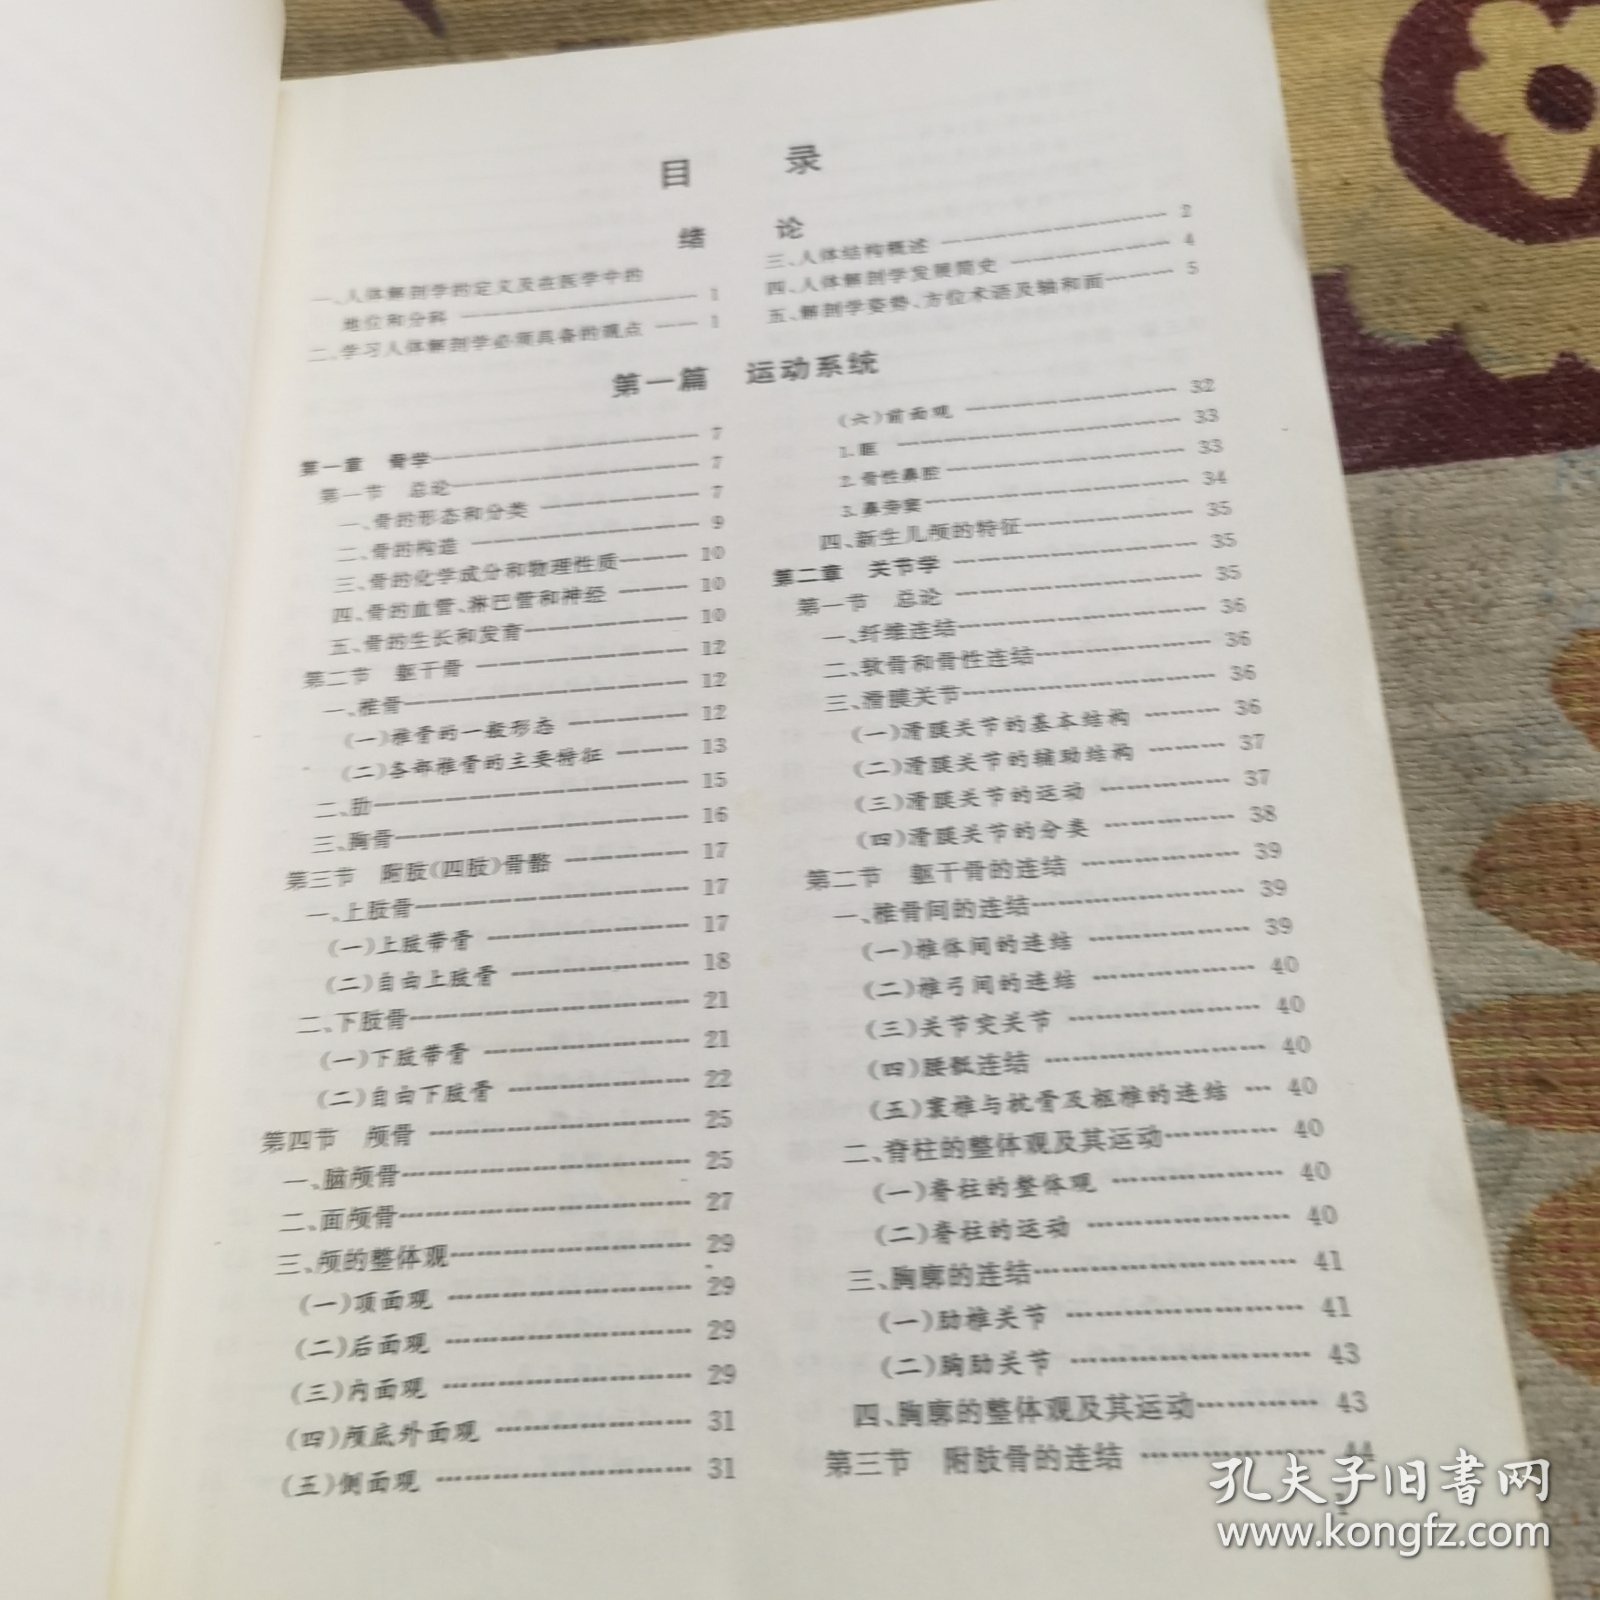 目 录
绪 论
一、人体解剖学的定义及在医学中的
地位和分科 1
二、学习人体解剖学必须具备的观点 1
三、人体结构概述 2
四、人体解剖学发展简史 4
五、解剖学姿势、方位术语及轴和面 5
第一篇 运动系统
第一章 骨学 7
第一节 总论 7
一、骨的形态和分类 7
二、骨的构造 9
三、骨的化学成分和物理性质 10
四、骨的血管、淋巴管和神经 10
五、骨的生长和发育 10
第二节 躯干骨 12
一、椎骨 12
(一)椎骨的一般形态 12
(二)各部椎骨的主要特征 13
二、肋 15
三、胸骨 16
第三节 附肢(四肢)骨骼 17
一、上肢骨 17
(一)上肢带骨 17
(二)自由上肢骨 18
二、下肢骨 21
(一)下肢带骨 21
(二)自由下肢骨 22
第四节 颅骨 25
一、脑颅骨 25
二、面颅骨 27
三、颅的整体观 29
(一)顶面观 29
(二)后面观 29
(三)内面观 29
(四)颅底外面观 31
(五)侧面观 31
(六)前面观 32
1. 眶 33
2. 骨性鼻腔 33
3. 鼻旁窦 34
四、新生儿颅的特征 35
第二章 关节学 35
第一节 总论 35
一、纤维连结 36
二、软骨和骨性连结 36
三、滑膜关节 36
(一)滑膜关节的基本结构 36
(二)滑膜关节的辅助结构 37
(三)滑膜关节的运动 37
(四)滑膜关节的分类 38
第二节 躯干骨的连结 39
一、椎骨间的连结 39
(一)椎体间的连结 39
(二)椎弓间的连结 40
(三)关节突关节 40
(四)腰骶连结 40
(五)寰椎与枕骨及枢椎的连结 40
二、脊柱的整体观及其运动 40
(一)脊柱的整体观 40
(二)脊柱的运动 40
三、胸廓的连结 41
(一)肋椎关节 41
(二)胸肋关节 43
四、胸廓的整体观及其运动 43
第三节 附肢骨的连结 44
孔夫子旧书网
www.kongfz.com